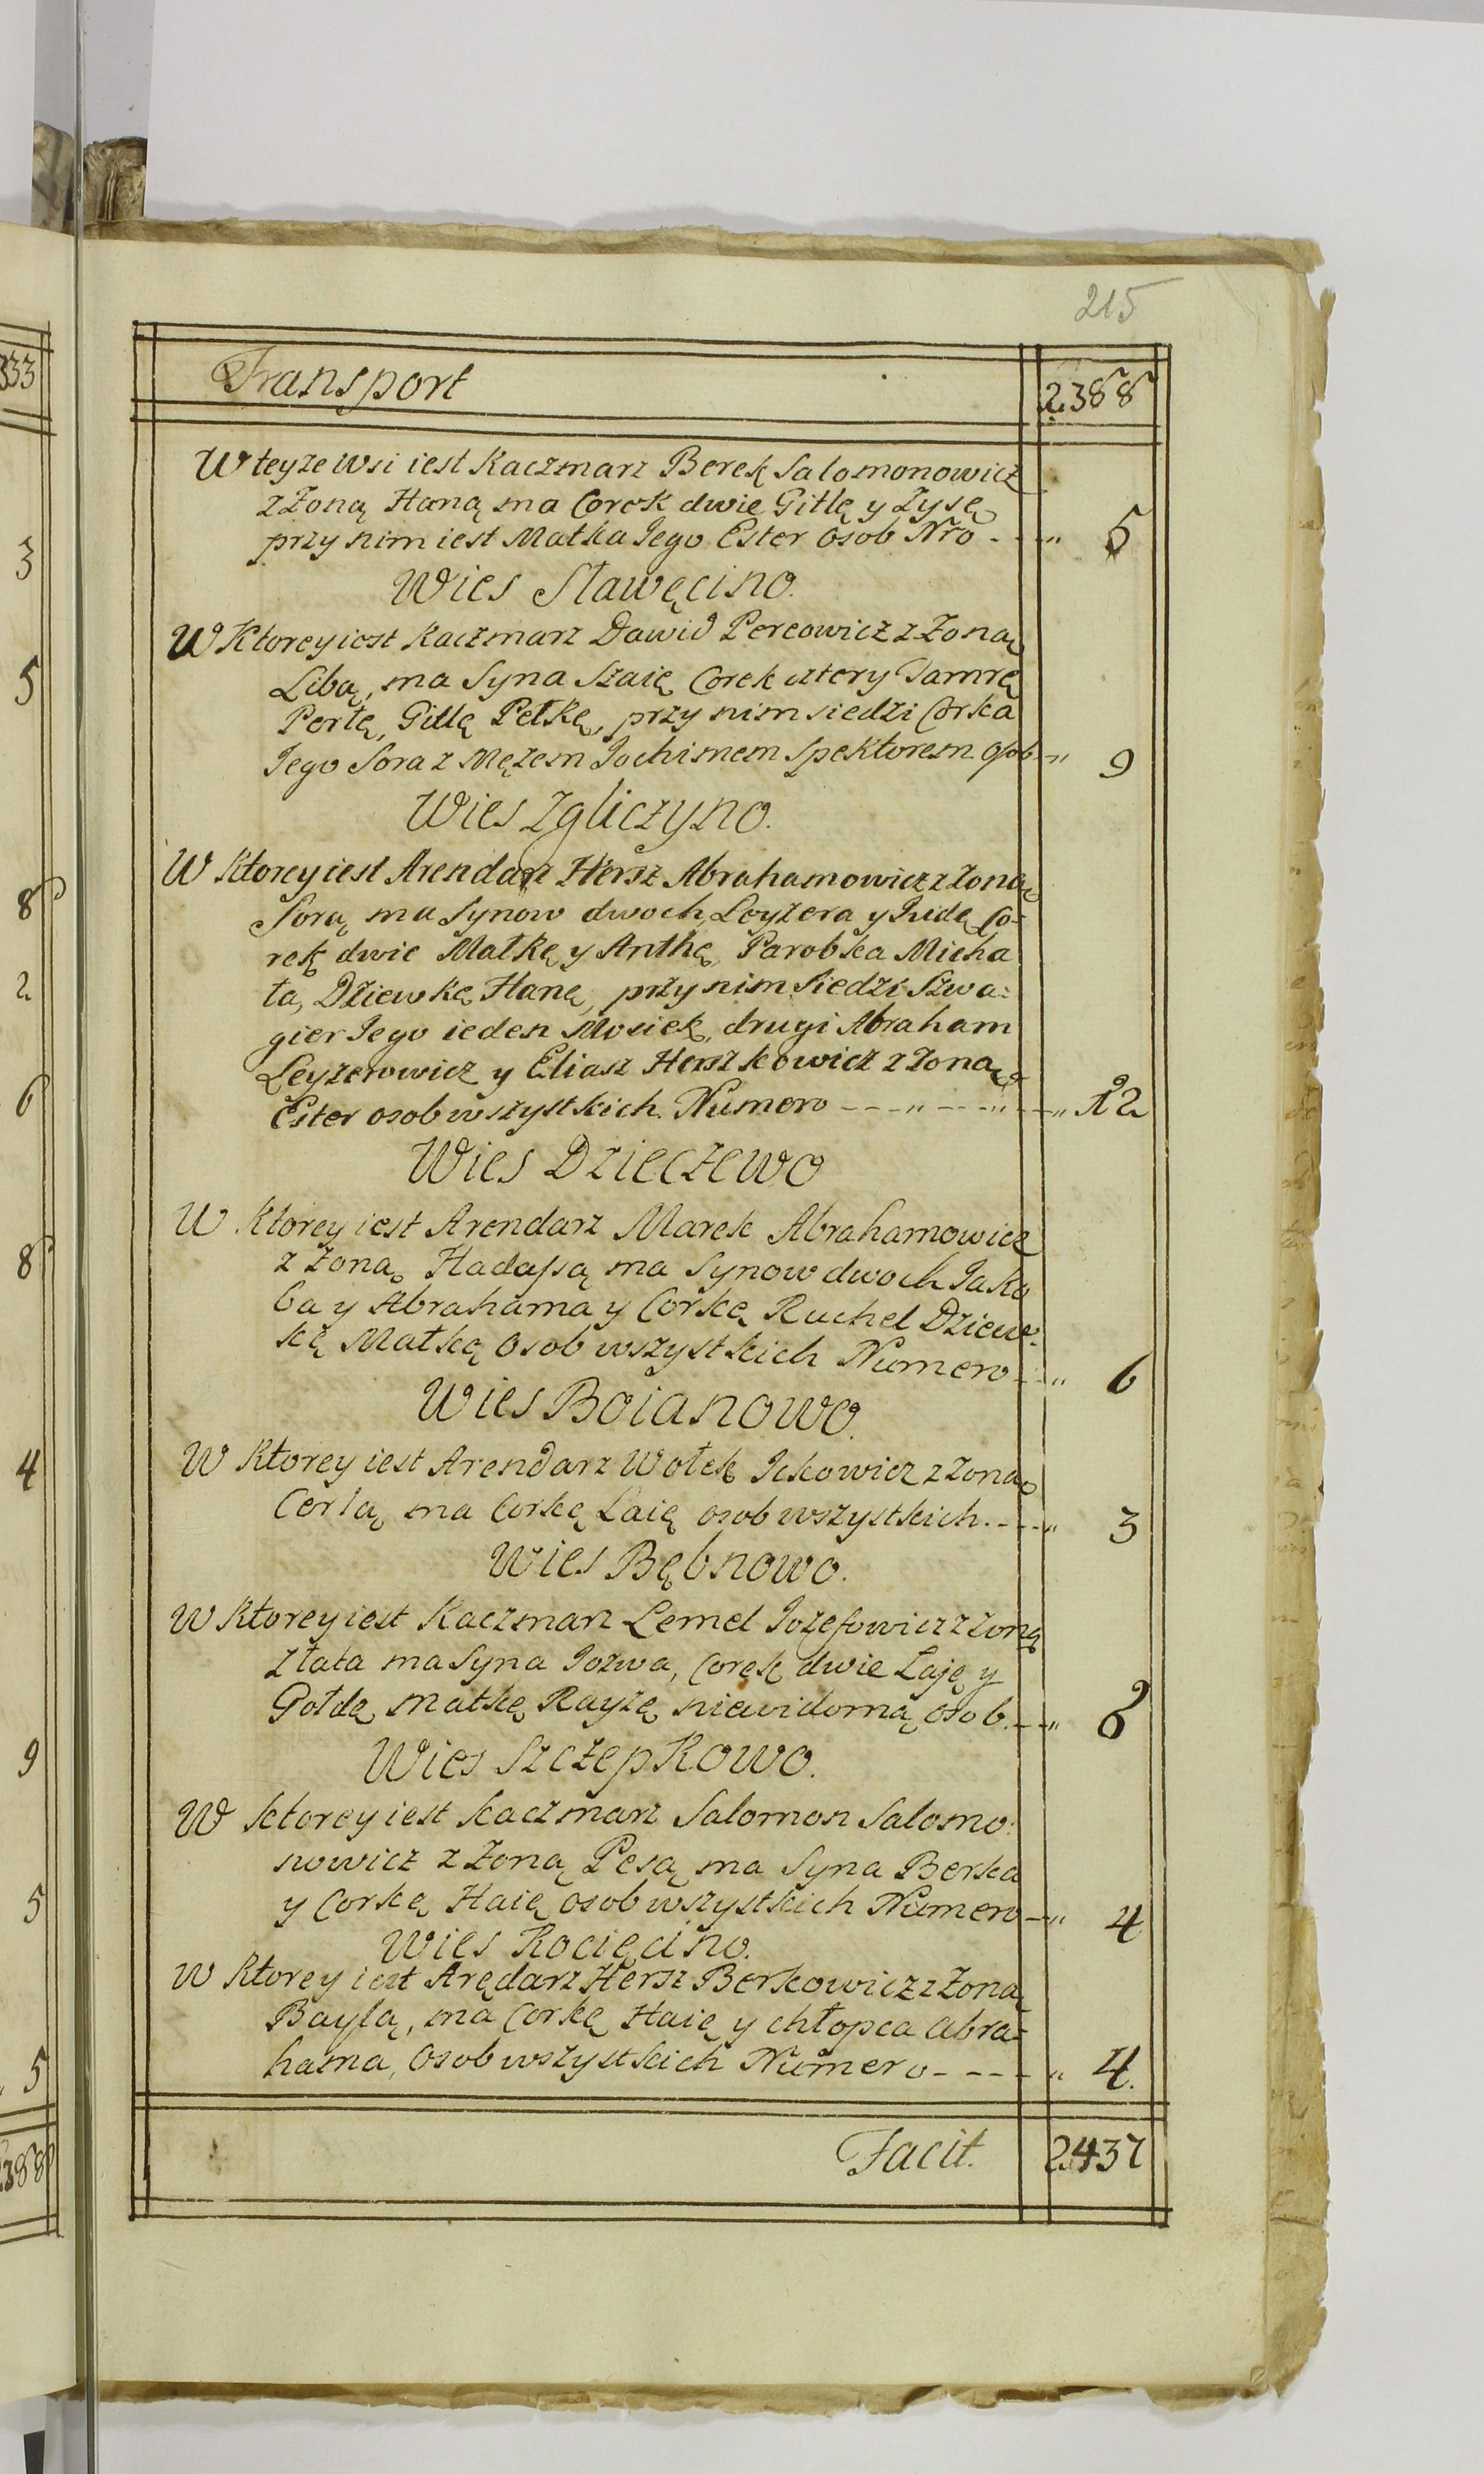 215
Transport 2388
W teyze Wsi iest Kaczmarz Berek Salomonowicz
z Zoną Haną ma Corek dwie Gitlę y Zysę
przy nim iest Matka Jego Ester osob Nro 5
Wies Sławęcino.
W Ktorey iest Kaczmarz Dawid Percowicz z Zoną
Libą, ma Syna Szaię Corek cztery Tamrę
Perlę, Gitlę Pełkę, przy nim siedzi Corka
Jego Sora z Mężem Jochimem Spektorem osob 9
Wies Zgliczyno.
W Ktorey iest Arendarz Hersz Abrahamowicz z Zoną
Sorą ma Synow dwoch, Leyzera y Judę Co-
rek dwie Małkę y Anthę, Parobka Micha
ła, Dziewkę Hanę, przy nim Siedzi Szwa-
gier Jego ieden Mosiek, drugi Abraham
Leyzerowicz y Eliasz Herszkowicz z Zoną
Ester osob wszystkich Numero 12
Wies Dzieczewo
W Ktorey iest Arendarz Marek Abrahamowicz
z Zoną Hadassą ma Synow dwoch Jako
ba y Abrahama y Corkę Ruchel Dziew-
kę Małkę Osob wszystkich Numero 6
Wies Boianowo.
W Ktorey iest Arendarz Wołek Ickowicz z Zoną
Cerlą ma Corkę Laię osob wszystkich 3
Wies Bębnowo.
W Ktorey iest Kaczmarz Lemel Jozefowicz z Zoną
Złata ma Syna Jozwa, Corek dwie Laję y
Gołdę Matkę Rayzę niewidomą osob 6
Wies Szczepkowo.
W ktorey iest kaczmarz Salomon Salomo-
nowicz z Zoną Pesą ma Syna Berka
y Corkę Haię osob wszystkich Numero 4
Wies Rocięcino.
W Ktorey iest Arędarz Hersz Berkowicz z Zoną
Baylą, ma Corkę Haię y chłopca Abra-
hama, Osob wszystkich Numero 4.
Facit. 2437
333
3
5
8
2
6
8
4
9
5
5
2388